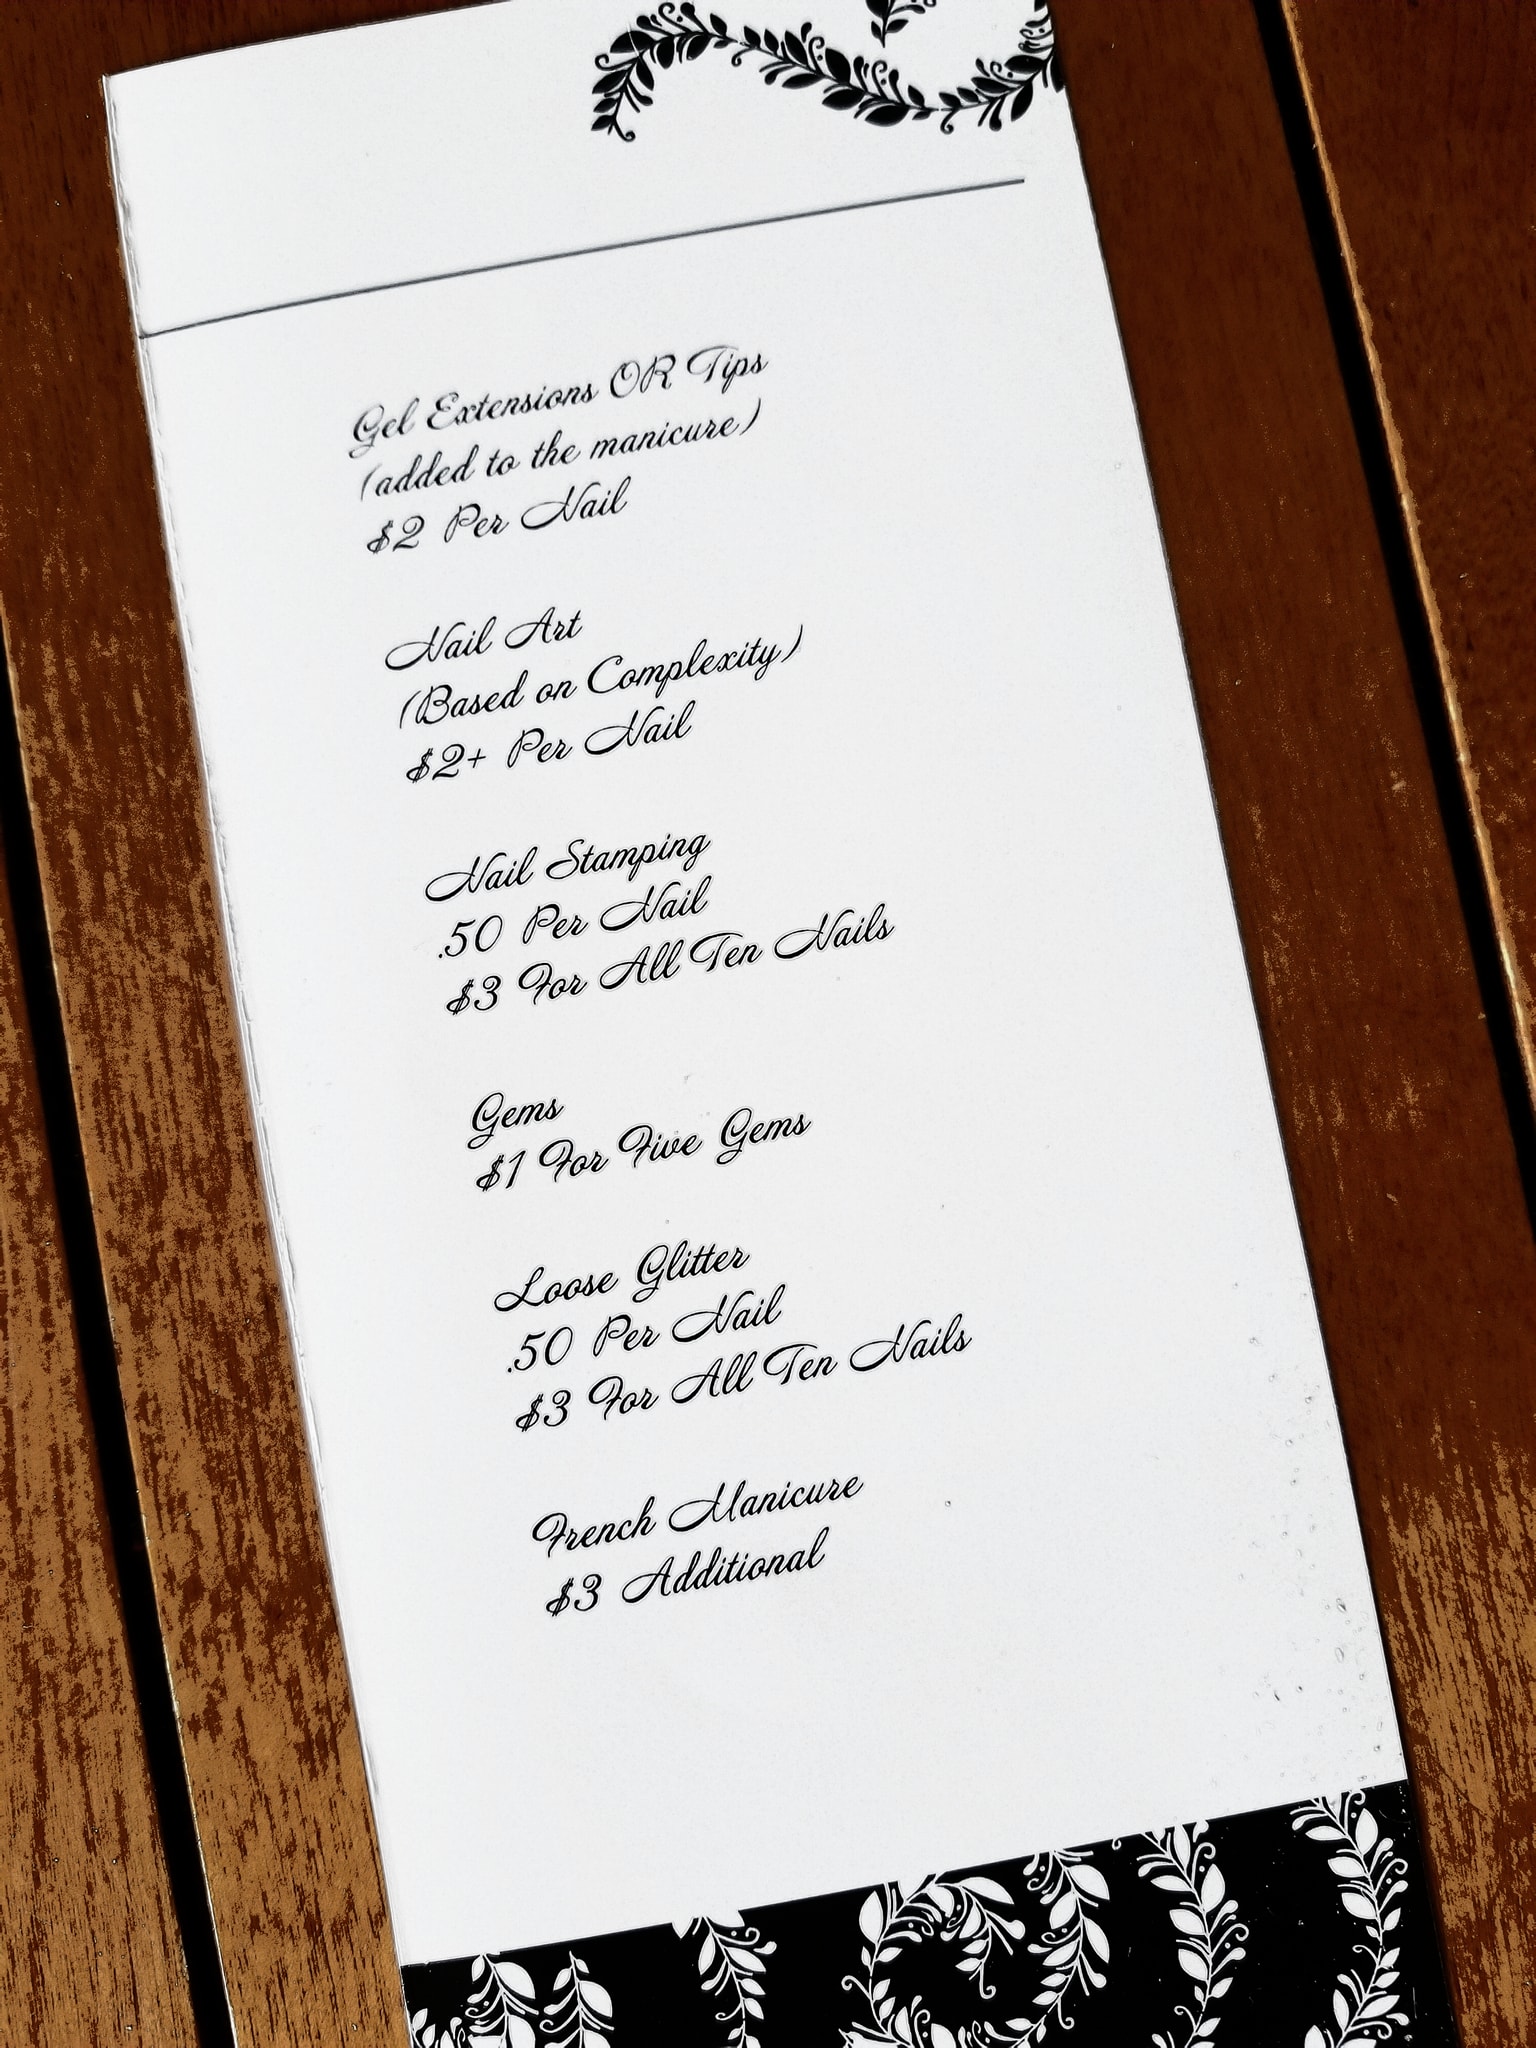 Gel Extensions OR Tips
(added to the manicure)
$2 Per Nail
Nail Art
(Based on Complexity)
$2+ Per Nail
Nail Stamping
.50 Per Nail
$3 For All Ten Nails
Gems
$1 For Five Gems
Loose Glitter
.50 Per Nail
$3 For All Ten Nails
French Manicure
$3 Additional